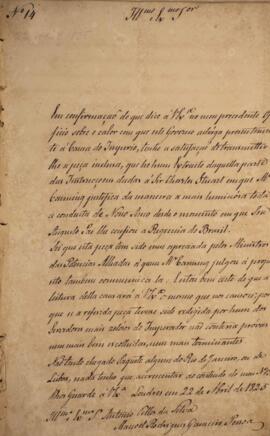 Nº 14
Illmo e Exmo Snr
Em confirmação do que dice a V. Exª no meu precedente Of
ficio sobre o calor com que este Governo advoga presentemen
te a Causa do Imperio, tenho a satisfação de transmittir
lhe a peça inclusa, que he hum Extracto daquella parte
das Instrucçoens dadas a Sir Charles Stuart em que Mr
Canning justifica da maneira a mais luminosa toda
a conducta de Nosso Amo desde o momento em que Seu
Augusto Pai lhe confiou a Regencia do Brasil.
Sei que esta peça tem sido mui apreciada pelos Ministros
das Potencias Alliadas á quem Mr Canning julgou a propo
sito tambem communica-la. Estou bem certo de que a
leitura della causará a V. Exª o mesmo que nos causou; por
que se a referida peça tivesse sido redigida por hum dos
Servidores mais zelosos do Imperador não conteria provas
nem mais bem escolhidas, nem mais terminantes
Não tendo chegado Paquete algum do Rio de Janeiro, ou de
Lisboa, nada tenho que accrescentar ao conteudo do meu Nº
Deos Guarde a V. Exª Londres em 22 de Abril de 1825
Illmo e Exmo Snr Antonio Telles da Silva
Manoel Rodrigues Gameiro Pessoa